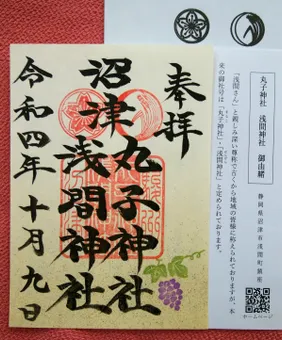 奉拝
沼津
丸子神社
浅間神社
令和四年十月九日
丸子神社 浅間神社 御由緒
静岡県沼津市浅間町鎮座
「浅間さん」と親しみ深い尊称で古くから地域の皆様に称えられておりますが、本
来の御社号は「丸子神社」・「浅間神社」と定められております。
ホームページ